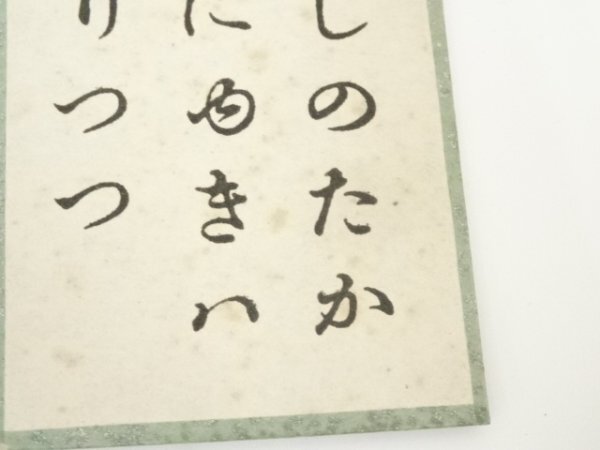 しのたか
にゆきハ
りつつ